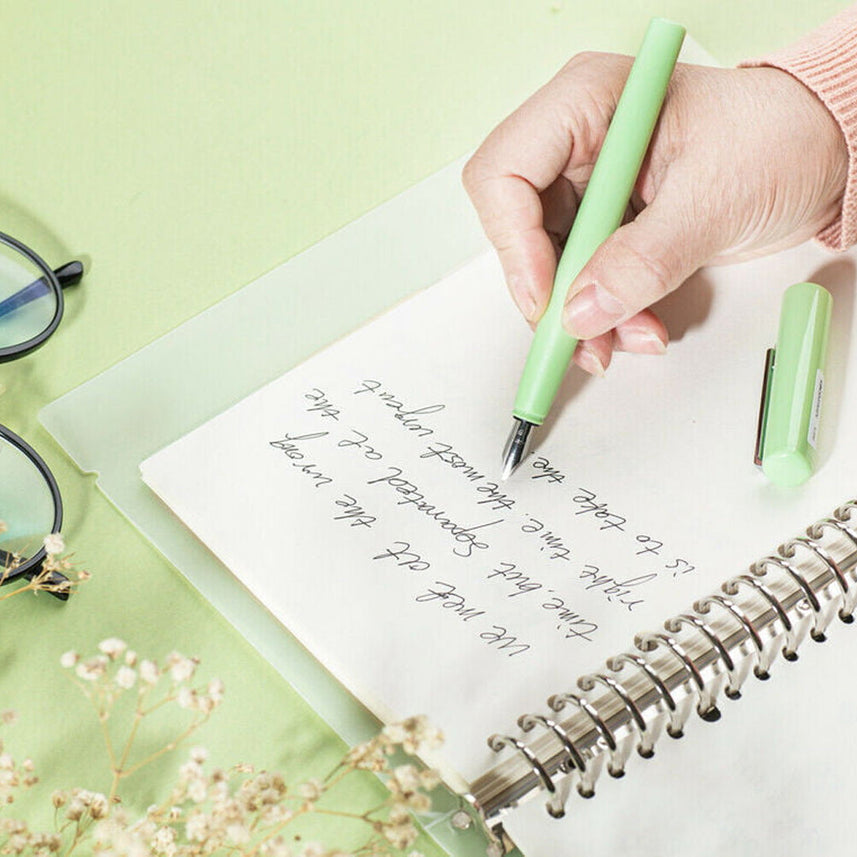 we met at the wrong
time. but separated at the
right time. the most urgent
is to take the